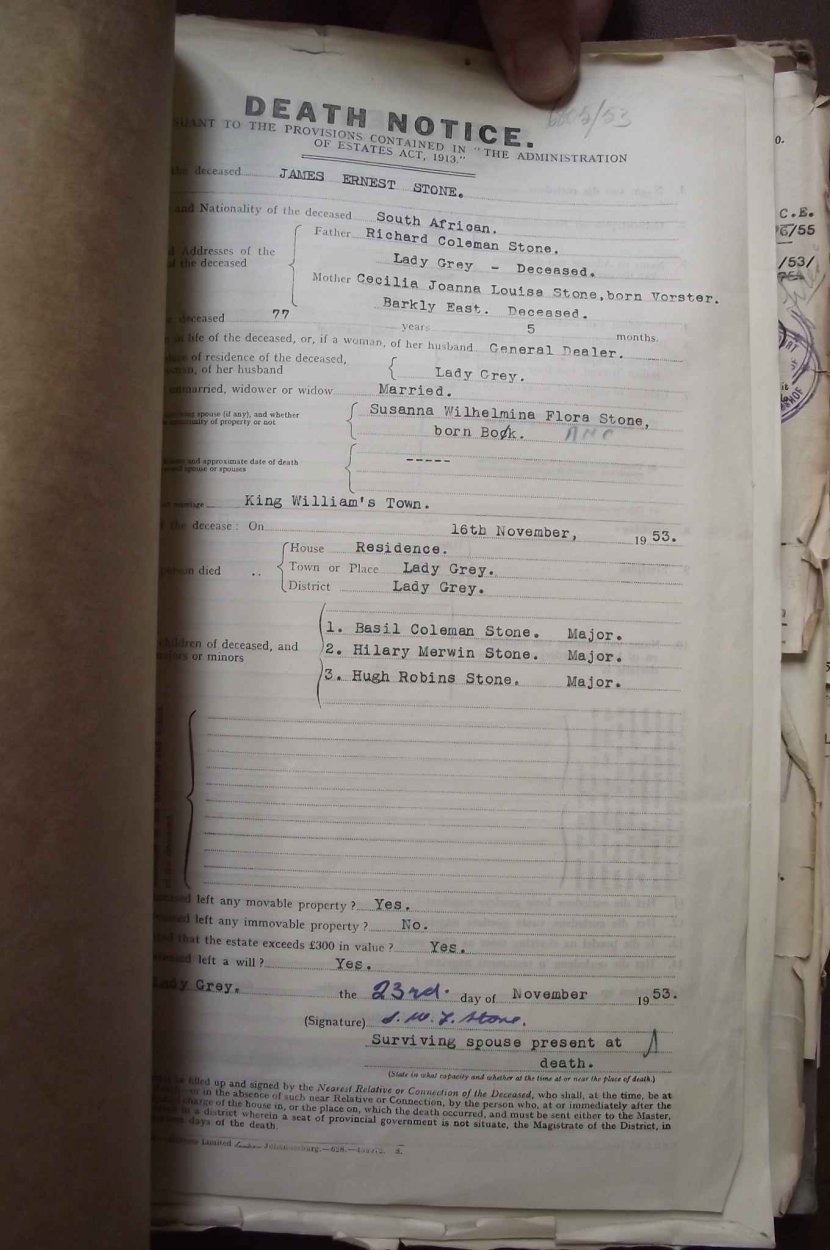 6805/53
DEATH NOTICE.
SUANT TO THE PROVISIONS CONTAINED IN "THE ADMINISTRATION
OF ESTATES ACT, 1913."
the deceased JAMES ERNEST STONE.
and Nationality of the deceased South African.
Father Richard Coleman Stone.
d Addresses of the
of the deceased
Lady Grey - Deceased.
Mother Cecilia Joanna Louisa Stone, born Vorster.
Barkly East. Deceased.
deceased 77 years 5 months.
in life of the deceased, or, if a woman, of her husband General Dealer.
of residence of the deceased,
of her husband Lady Grey.
unmarried, widower or widow Married.
spouse (if any), and whether
of property or not
Susanna Wilhelmina Flora Stone,
born Bock. ANC
and approximate date of death
spouse or spouses
-----
marriage King William's Town.
the decease: On 16th November, 1953.
person died .. House Residence.
Town or Place Lady Grey.
District Lady Grey.
children of deceased, and
majors or minors
1. Basil Coleman Stone. Major.
2. Hilary Merwin Stone. Major.
3. Hugh Robins Stone. Major.
left any movable property? Yes.
left any immovable property? No.
that the estate exceeds £300 in value? Yes.
left a will? Yes.
Lady Grey. the 23rd. day of November 1953.
(Signature) S. W. F. Stone.
Surviving spouse present at
death.
(State in what capacity and whether at the time at or near the place of death.)
filled up and signed by the Nearest Relative or Connection of the Deceased, who shall, at the time, be at
or in the absence of such near Relative or Connection, by the person who, at or immediately after the
charge of the house in, or the place on, which the death occurred, and must be sent either to the Master,
in a district wherein a seat of provincial government is not situate, the Magistrate of the District, in
days of the death.
Limited Johannesburg.—628.
C.E.
/55
/53/